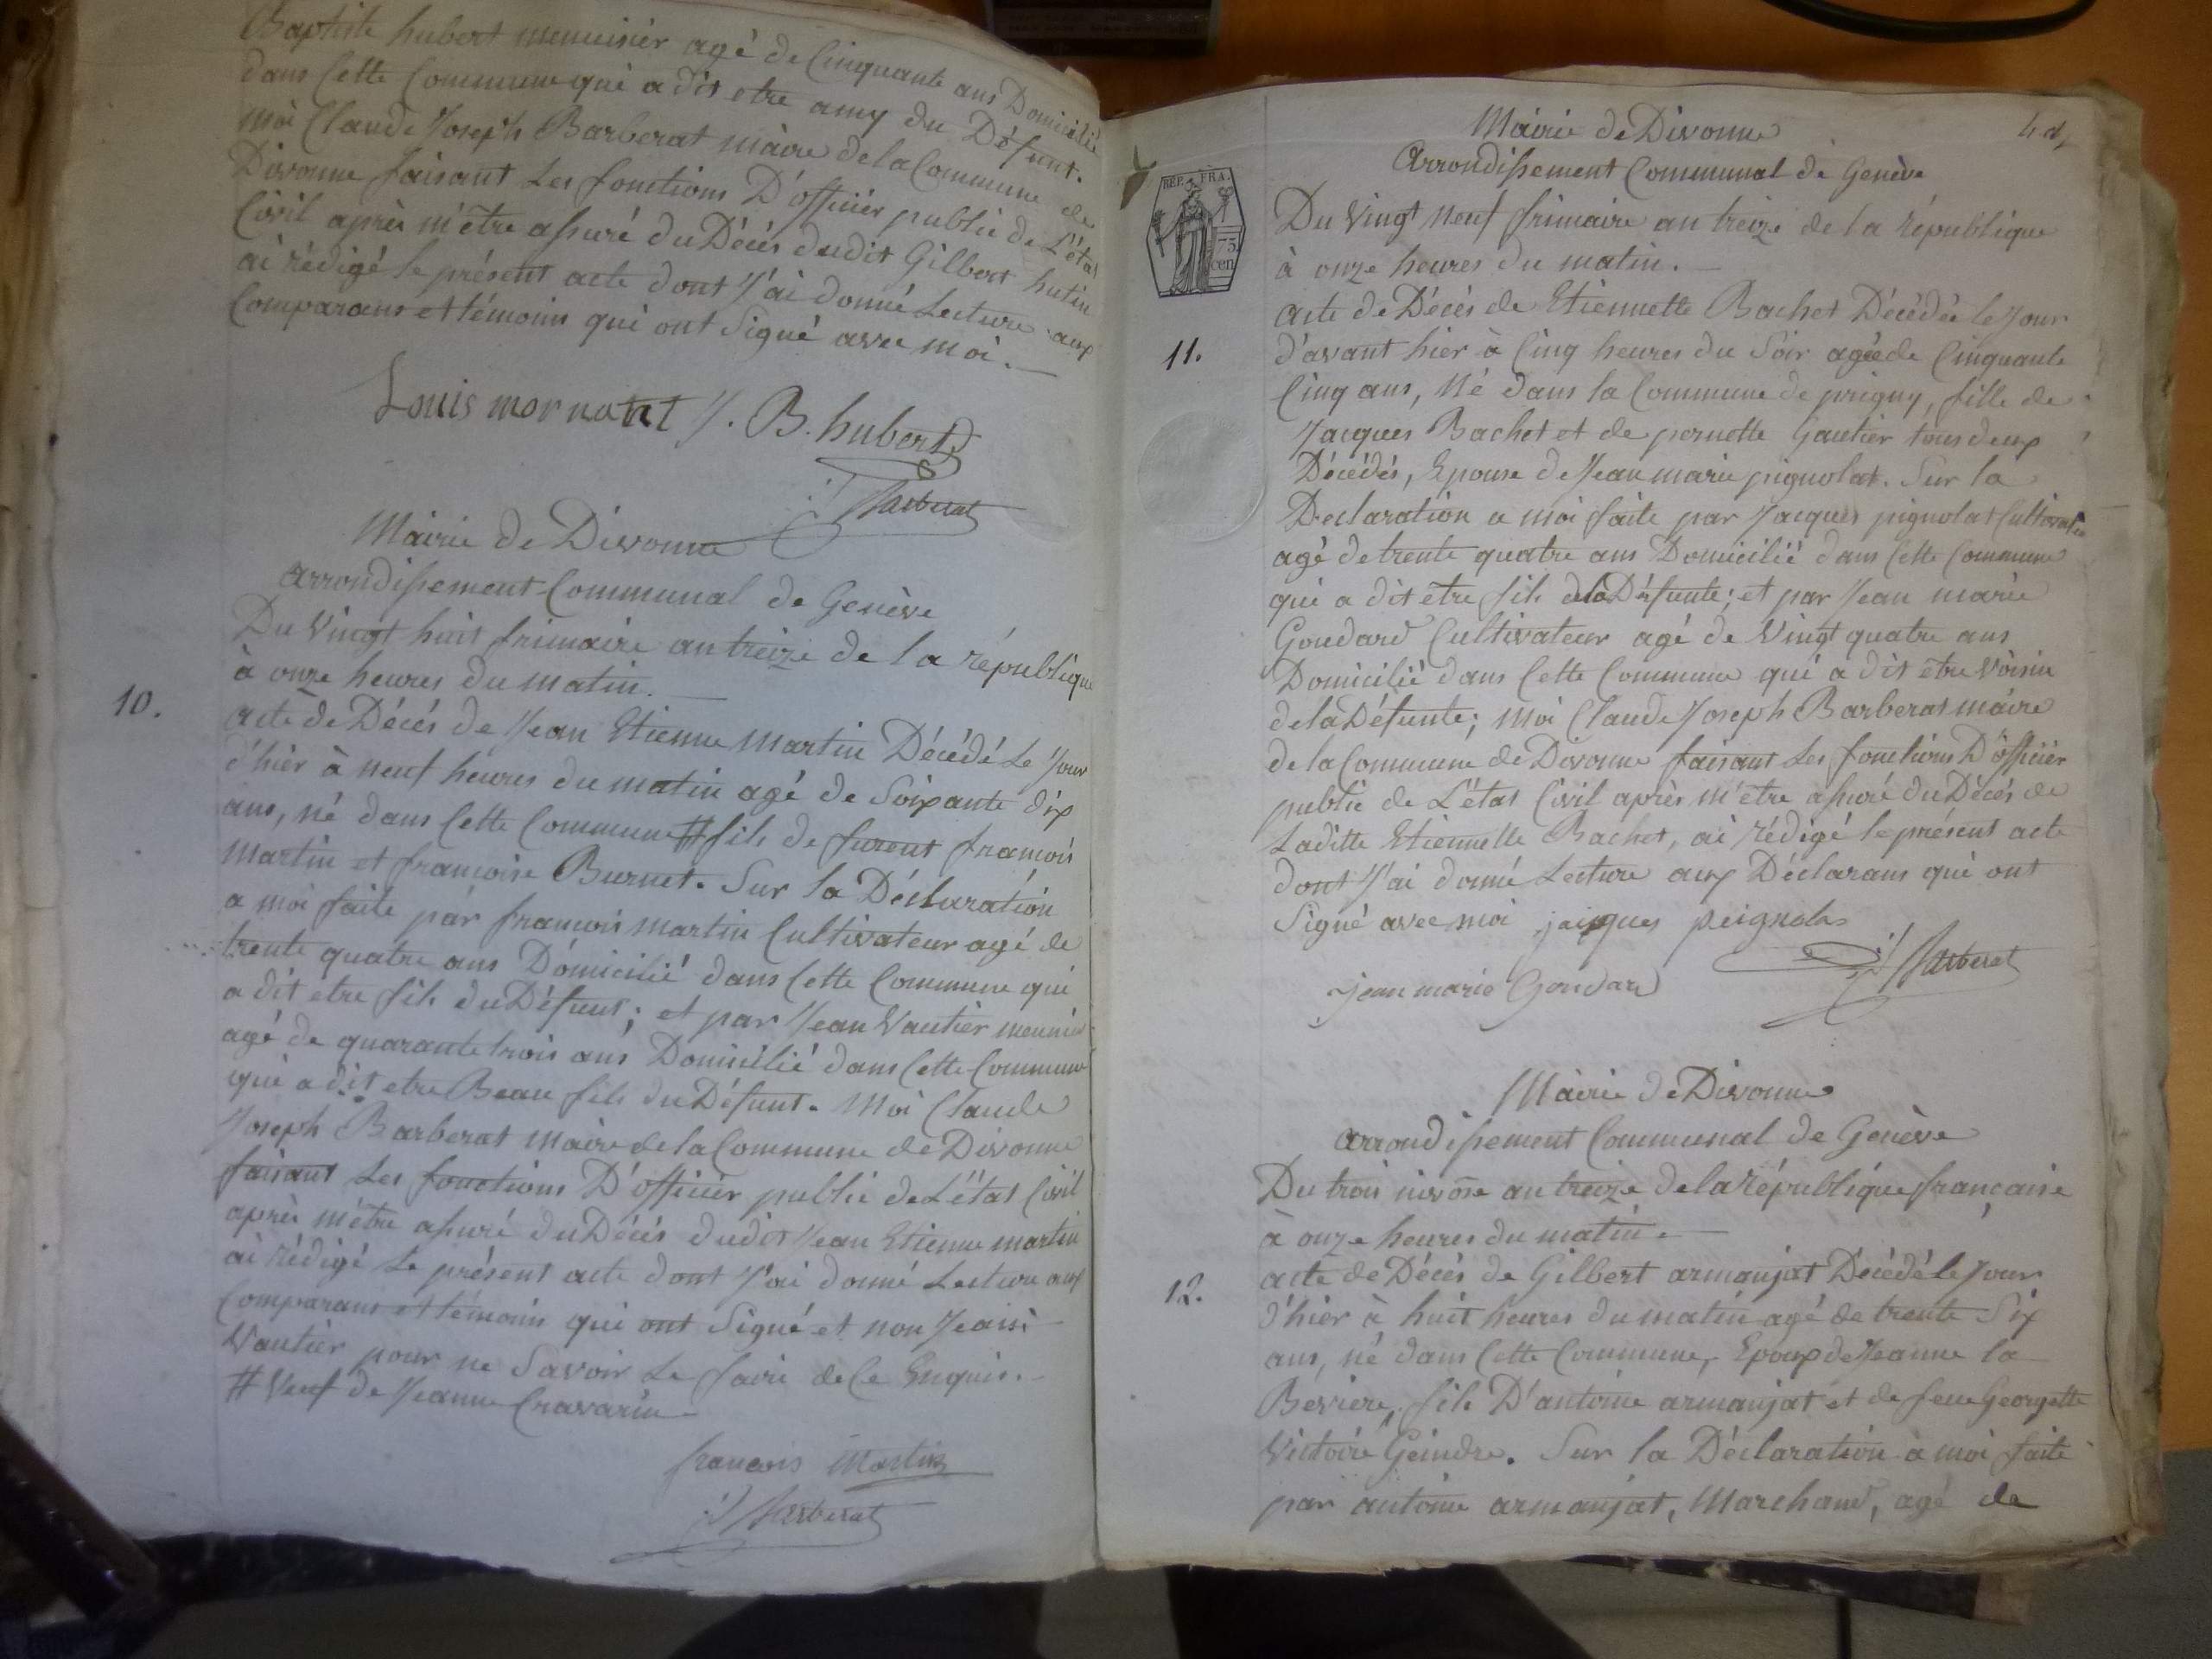 Baptiste hubert menuisier agé de Cinquante ans Domicilié
dans Cette Commune qui a dit etre amy du Défunt.
moi Claude Joseph Barberat màire de la Commune de
Divonne faisant Les fonctions D'officier public de L'état
Civil après m'être assuré du Décés dudit Gilbert hutin
ai rédigé le présent acte dont J'ai donné Lecture aux
Comparans et témoins qui ont Signé avec moi.
Louis mornant J. B. hubert
Barberat
Mairie de Divonne
Arrondissement Communal de Genève
Du Vingt huit frimaire an treize de la république
à onze heures du matin.
10.
acte de Décés de Jean Etienne Martin Décédé Le Jour
d'hier à neuf heures du matin agé de Soixante dix
ans, né dans Cette Commune # fils de furent francois
Martin et francoise Burnet. Sur la Déclaration
a moi faite par francois martin Cultivateur agé de
trente quatre ans Domicilié dans Cette Commune qui
a dit etre fils du Défunt; et par Jean Vautier meunier
agé de quarante trois ans Domicilié dans Cette Commune
qui a dit etre Beau fils du Défunt. Moi Claude
Joseph Barberat Maire de la Commune de Divonne
faisant Les fonctions D'officier public de L'état Civil
après m'être assuré du Décés dudit Jean Etienne martin
ai rédigé Le présent acte dont J'ai donné Lecture aux
Comparans et témoin qui ont Signé et non
Vautier pour ne Savoir Le faire de Ce Enquis.
# Veuf de Jeanne Cravarin
francois Martin
Barberat
Mairie de Divonne
Arrondissement Communal de Genève
REP. FRA.
75
cen
Du Vingt neuf frimaire an treize de la république
à onze heures du matin.
11.
acte de Décés de Etiennette Bachet Décédée le Jour
d'avant hier à Cinq heures du Soir agée de Cinquante
Cinq ans, Né dans la Commune de prigny, fille de
Jacques Bachet et de pernette Gautier tous deux
Décédés, Epouse de Jean marie pignolat. Sur la
Declaration a moi faite par Jacques pignolat Cultivateur
agé de trente quatre ans Domicilié dans Cette Commune
qui a dit etre fils de la Défunte; et par Jean marie
Goudard Cultivateur agé de Vingt quatre ans
Domicilié dans Cette Commune qui a dit etre Voisin
de la Défunte; moi Claude Joseph Barberat màire
de la Commune de Divonne faisant Les fonctions D'officier
public de L'état Civil après m'etre assuré du Décés de
Laditte Etiennette Bachet, ai rédigé le présent acte
dont J'ai donné Lecture aux Déclarans qui ont
Signé avec moi jacques peignola
Barberat
jean marie Goudard
Mairie de Divonne
arrondissement Communal de Genève
Du trois nivôse an treize de la république francaise
à onze heures du matin.
12.
acte de Décés de Gilbert armanjat Décédé le Jour
d'hier à huit heures du matin agé de trente Six
ans, né dans Cette Commune, Epoux de Jeanne la
Beviere, fils D'antoine armanjat et de feue Georgette
Victoire Geindre. Sur la Déclaration à moi faite
par antoine armanjat, Marchand, agé de